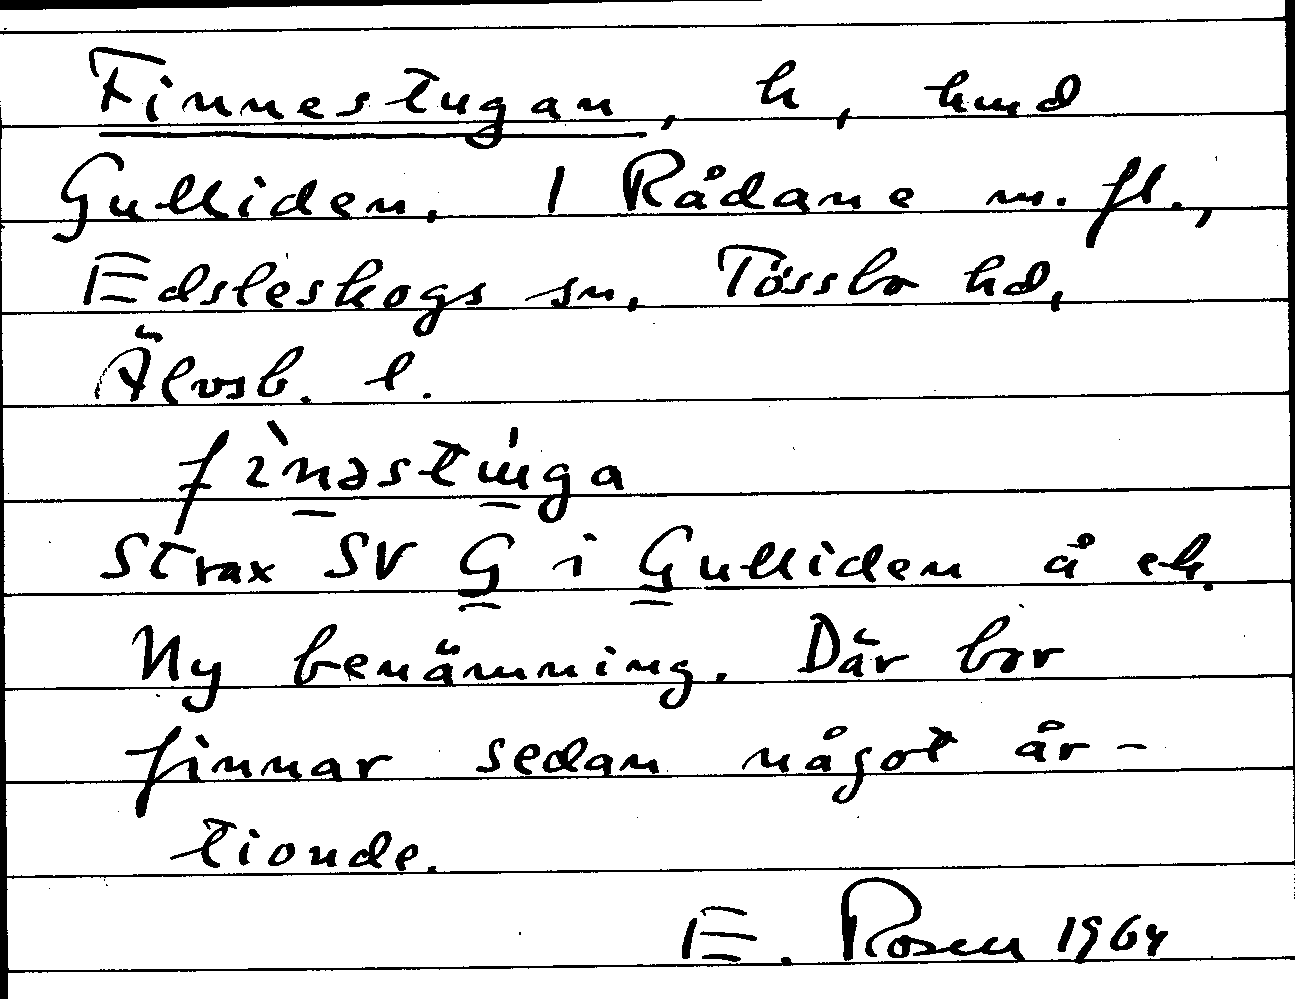 Finnestugan, h, hmd
Gulliden, 1 Rådane m. fl.,
Edsleskogs sn, Tössbo hd,
Älvsb. l.
fìnəstu̇ga
Strax SV G i Gulliden å ek.
Ny benämning. Där bor
finnar sedan något år-
tionde.
E. Rosen 1964